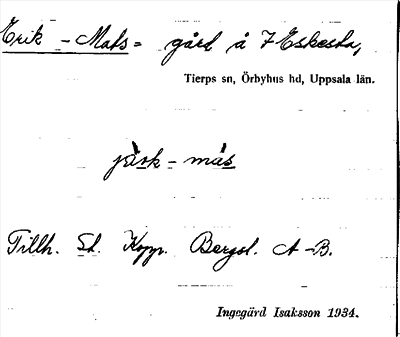 Erik-Mats= gård å 7 Eskesta,
Tierps sn, Örbyhus hd, Uppsala län.
jẁsk-màs
Tillh. St. Kopp. Bergsl. A-B.
Ingegärd Isaksson 1934.